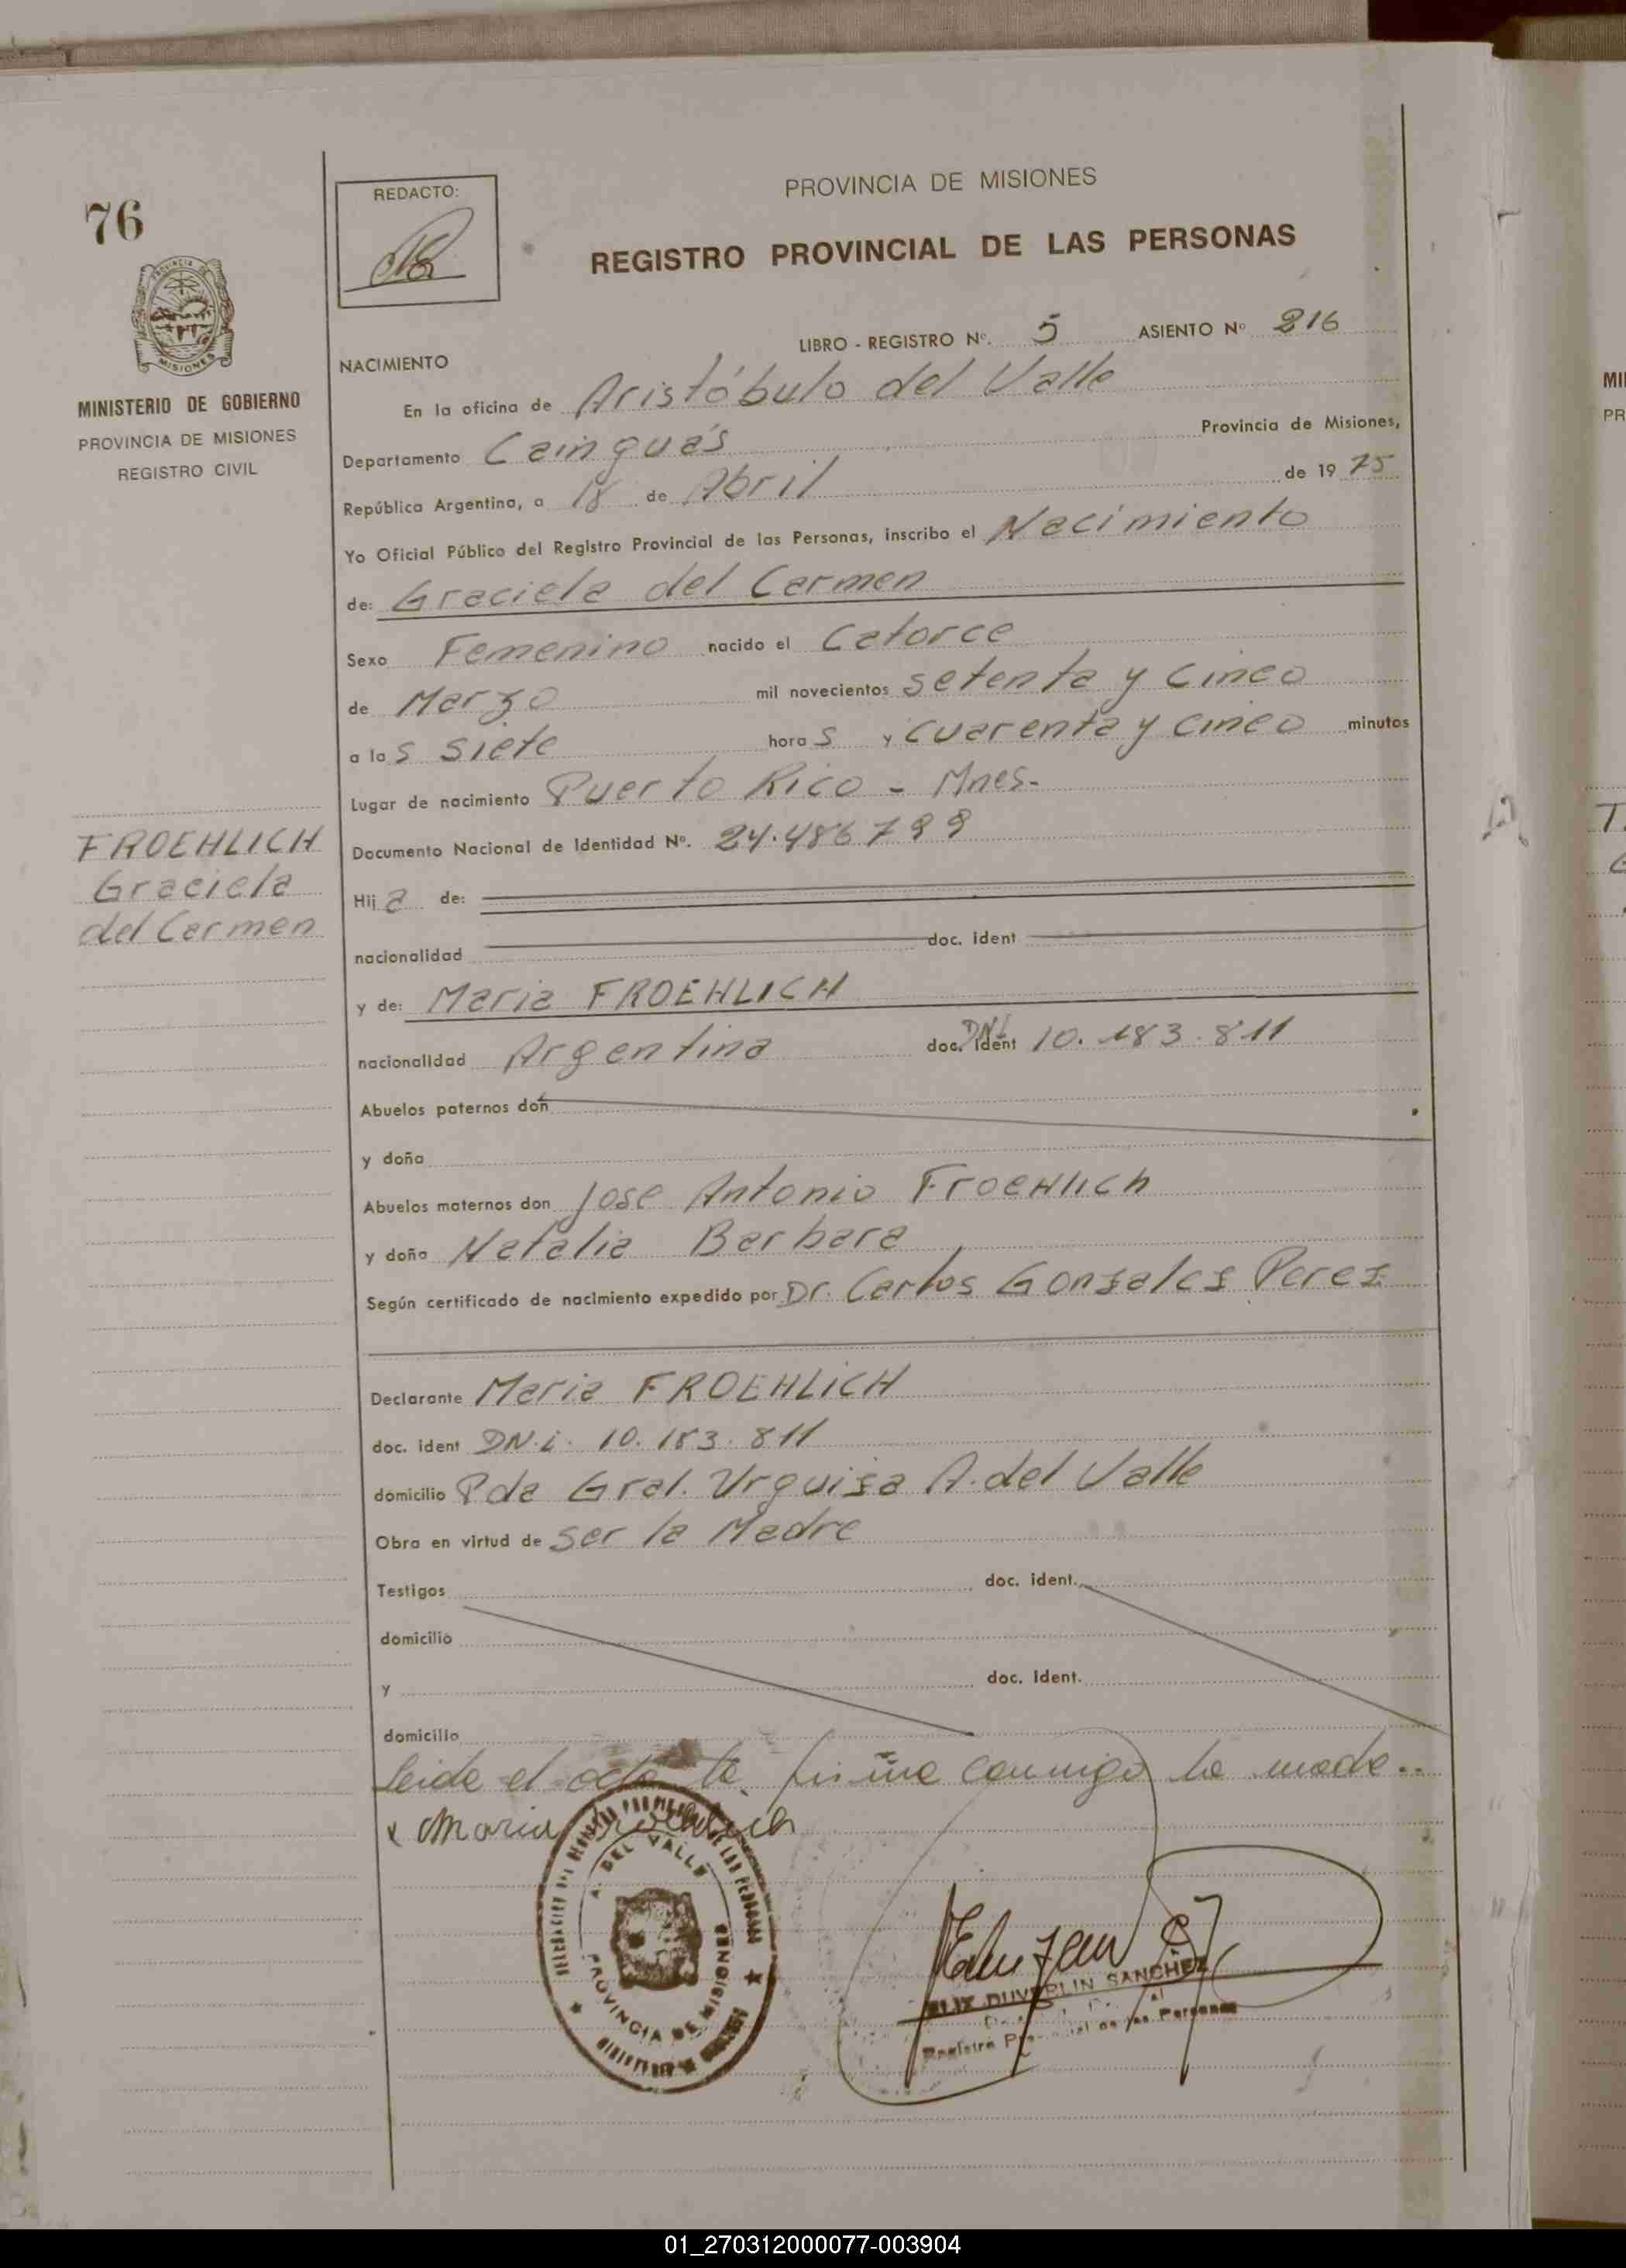 76
REDACTO:
PROVINCIA DE MISIONES
REGISTRO PROVINCIAL DE LAS PERSONAS
PROVINCIA DE
MISIONES
MINISTERIO DE GOBIERNO
PROVINCIA DE MISIONES
REGISTRO CIVIL
LIBRO - REGISTRO Nº. 5 ASIENTO Nº 216
NACIMIENTO
En la oficina de Aristóbulo del Valle
Departamento Cainguás Provincia de Misiones,
República Argentina, a 18 de Abril de 19 75
Yo Oficial Público del Registro Provincial de las Personas, inscribo el Nacimiento
de: Graciela del Carmen
Sexo Femenino nacido el Catorce
de Marzo mil novecientos setenta y cinco
a las siete horas y cuarenta y cinco minutos
Lugar de nacimiento Puerto Rico - Mnes-
FROEHLICH
Graciela
del Carmen
Documento Nacional de Identidad Nº. 24.486799
Hija de:
nacionalidad doc. ident
y de: Maria FROEHLICH
nacionalidad Argentina doc. ident DNI 10.183.811
Abuelos paternos don
y doña
Abuelos maternos don Jose Antonio Froehlich
y doña Natalia Barbara
Según certificado de nacimiento expedido por Dr. Carlos Gonzales Perez
Declarante Maria FROEHLICH
doc. ident DN.i. 10.183.811
domicilio Pda Gral. Urquiza A. del Valle
Obra en virtud de ser la Madre
Testigos doc. ident.
domicilio
y doc. Ident.
domicilio
leida el acta la firma conmigo la madre..
x Maria Froehlich
A. DEL VALLE
PROVINCIA DE MISIONES
DUVERLIN SANCHEZ
Registro Provincial de las Personas
01_270312000077-003904